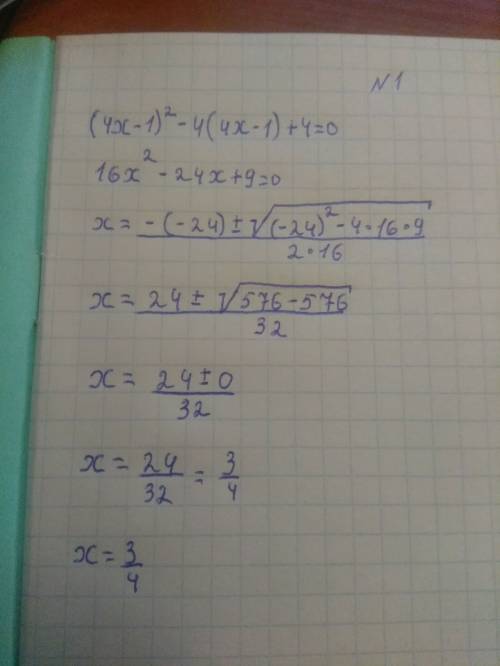 N1
(4x-1)² - 4(4x-1) + 4 = 0
16x² - 24x + 9 = 0
x = -(-24) ± √(-24)² - 4·16·9 / 2·16
x = 24 ± √576 - 576 / 32
x = 24 ± 0 / 32
x = 24/32 = 3/4
x = 3/4